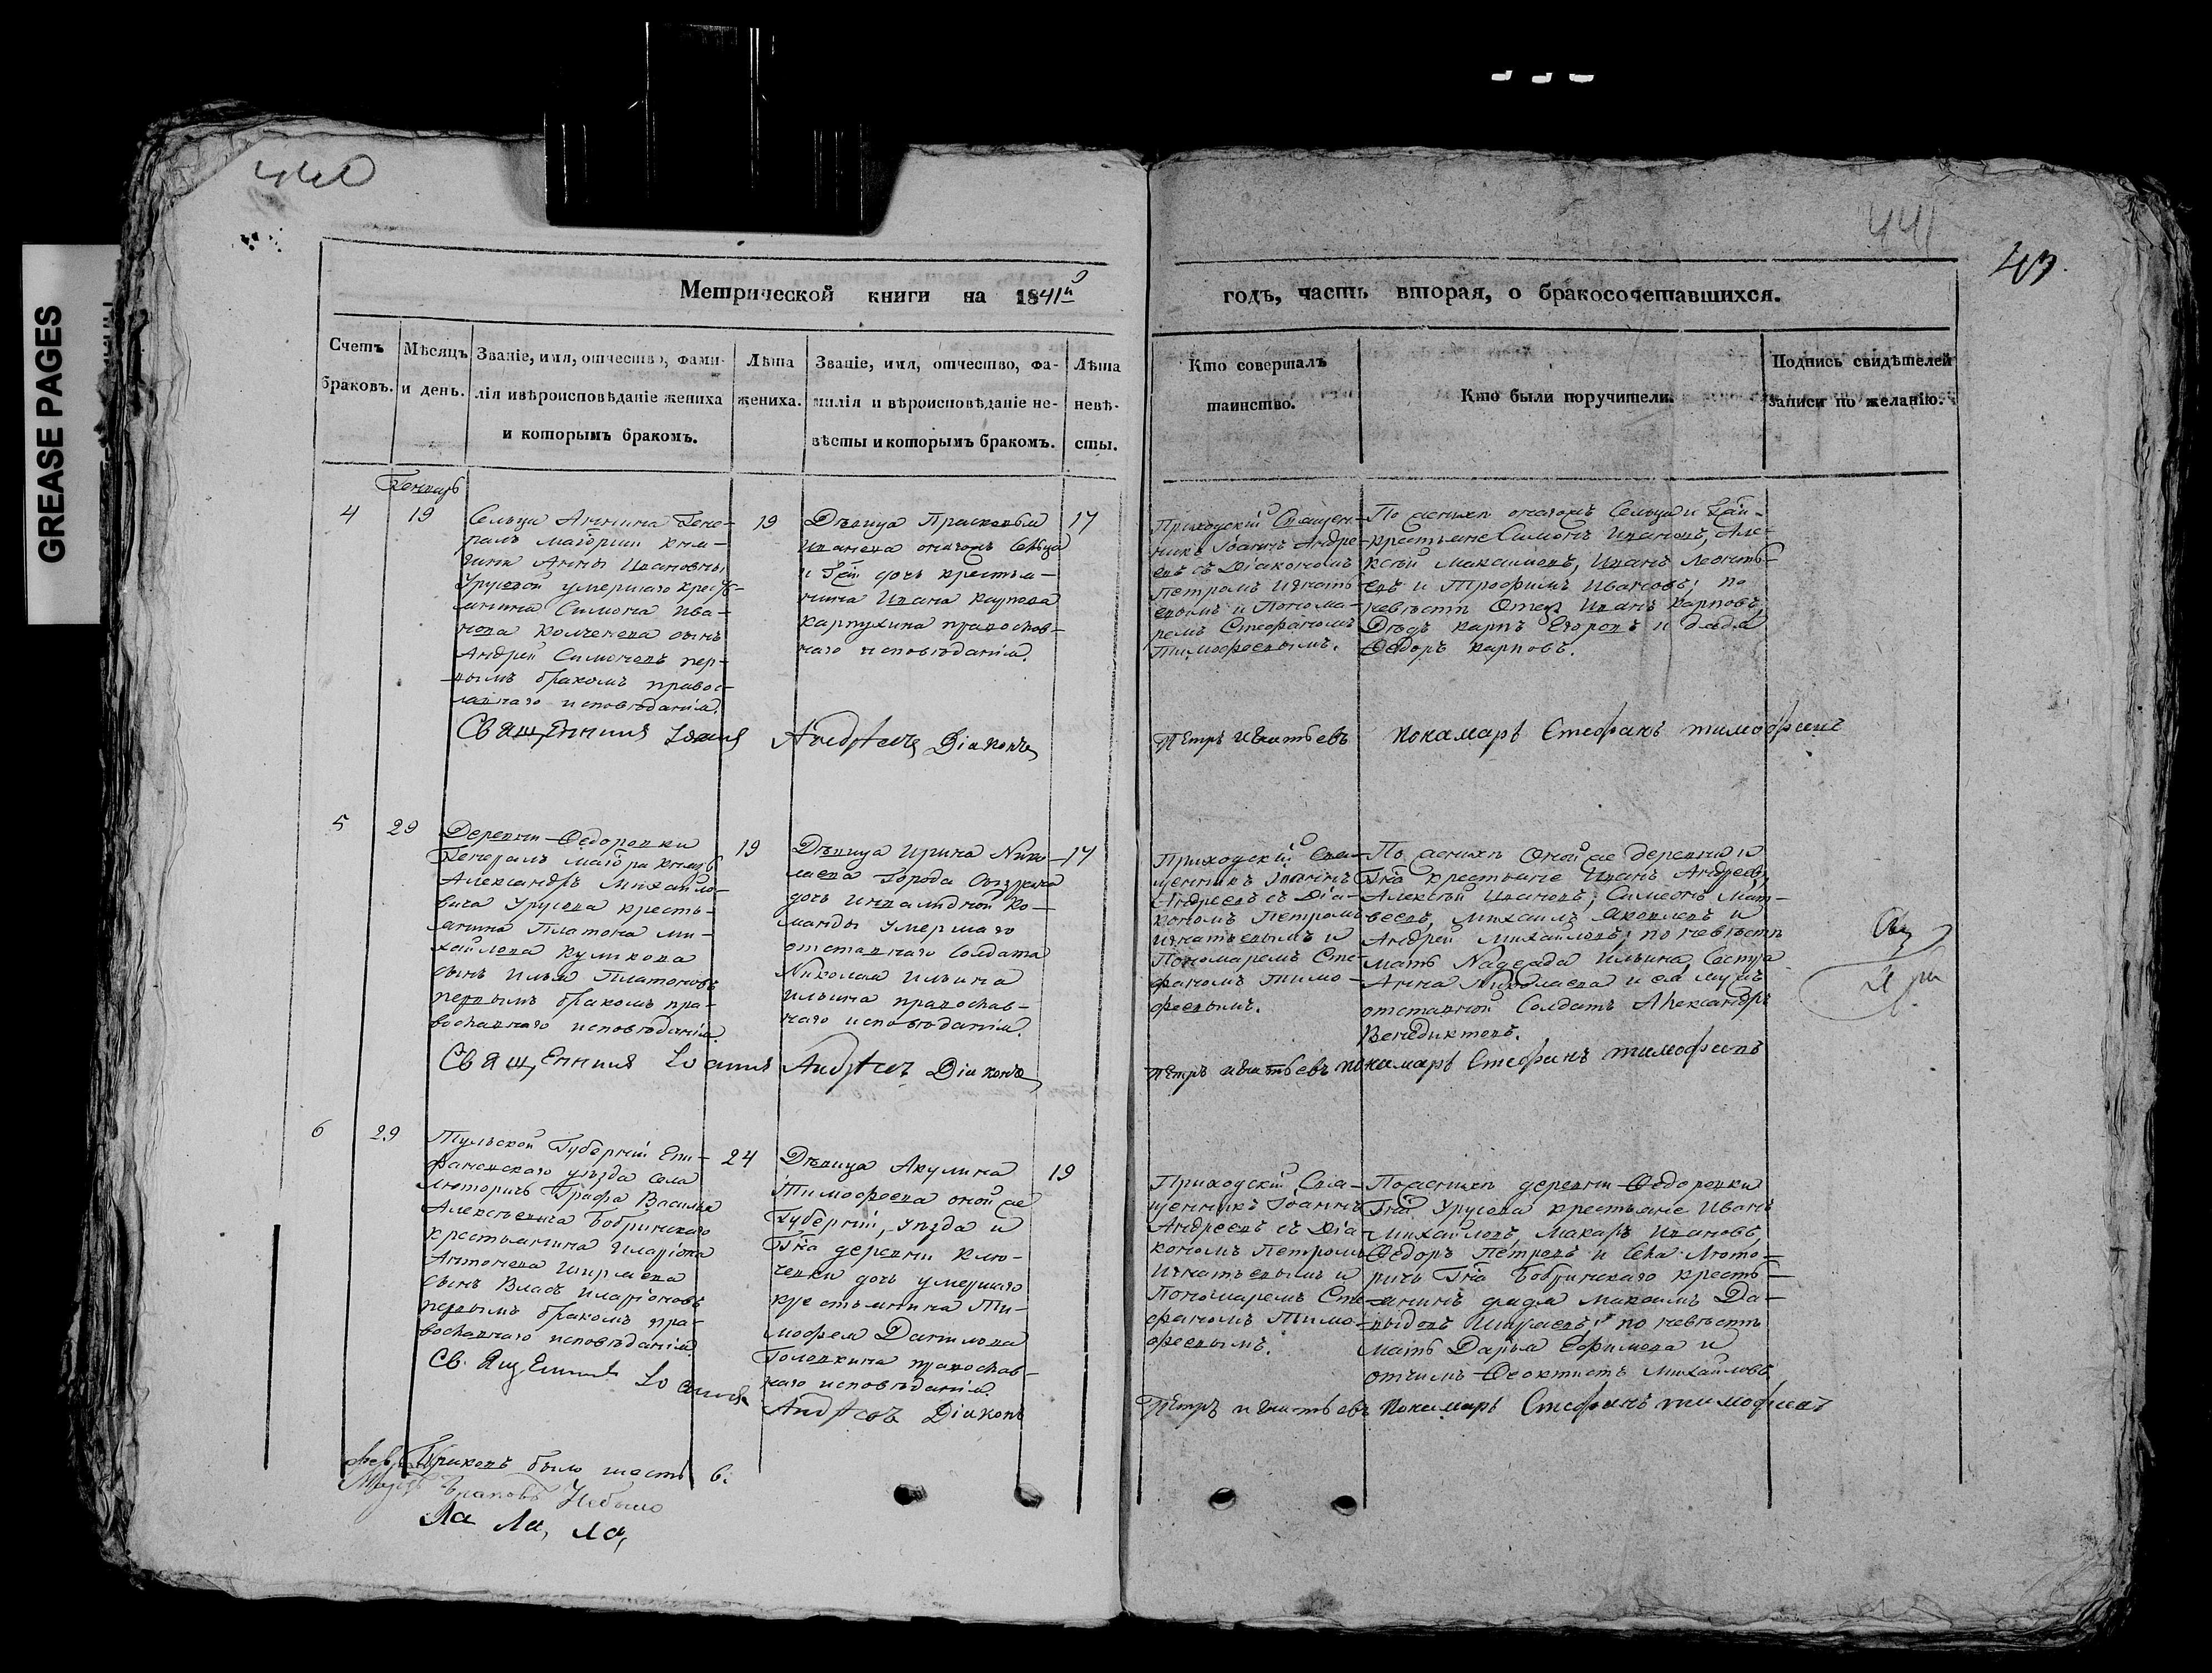 GREASE PAGES
440
441
43
Метрической книги на 1841й
годъ, часть вторая, о бракосочетавшихся.
Счетъ браковъ.
Мѣсяцъ и день.
Званіе, имя, отчество, фами-
лія и вѣроисповѣданіе жениха
и которымъ бракомъ.
Лѣта
жениха.
Званіе, имя, отчество, фа-
милія и вѣроисповѣданіе не-
вѣсты и которымъ бракомъ.
Лѣта
невѣ-
сты.
Кто совершалъ
таинство.
Кто были поручители.
Подпись свидѣтелей
записи по желанію.
Генварь
4
19
Сельца Аннина Гене-
ралъ маіорши кня-
гини Анны Ивановны
Урусовой умершаго кресть-
янина Симона Ива-
нова сынъ
Андрей Симоновъ пер-
вымъ бракомъ правос-
лавнаго исповѣданія.
19
Дѣвица Прасковья
Иванова онагожъ Сельца
и дочь крестья-
нина Ивана Карпова
Карпухина православ-
наго исповѣданія.
17
Приходскій Священ-
никъ Іоаннъ Андре-
евъ съ Діакономъ
Петромъ Игнать-
евымъ и Понома-
ремъ Стефаномъ
Тимофеевымъ.
По женихѣ онагожъ Сельца и
крестьяне Симонъ Ивановъ, Але-
ксѣй Максимовъ, Иванъ Леонть-
евъ и Трофимъ Ивановъ; по
невѣстѣ Отецъ Иванъ Карповъ,
Дѣдъ Карпъ Егоровъ и дядя
Ѳедоръ Карповъ.
Священникъ Іоаннъ Андреевъ Діаконъ
Петръ Игнатьевъ Понамарь Стефанъ Тимофеевъ
5
29
Деревни Ѳедоровки
Генералъ маіора Князь
Александръ Михайло-
вича Урусова кресть-
янина Платона Ми-
хайлова Куликова
сынъ Илья Платоновъ
первымъ бракомъ пра-
вославнаго исповѣданія.
19
Дѣвица Ирина Нико-
лаева Города Сызрана
дочь Инвалидной Ко-
манды умершаго
отставнаго Солдата
Николая Ильина
Ильина православ-
наго исповѣданія.
17
Приходскій Свя-
щенникъ Іоаннъ
Андреевъ съ Діа-
кономъ Петромъ
Игнатьевымъ и
Пономаремъ Сте-
фаномъ Тимо-
феевымъ.
По женихѣ Оной же деревни и
Гна крестьяне Иванъ Андреевъ,
Алексѣй Ивановъ, Симеонъ Мат-
веевъ, Михаилъ Яковлевъ и
Андрей Михайловъ; по невѣстѣ
мать Надежда Ильина, Сестра
Анна Николаева и ея мужъ
отставной Солдатъ Александръ
Венедиктовъ.
Священникъ Іоаннъ Андреевъ Діаконъ
Петръ Игнатьевъ Понамарь Стефанъ Тимофеевъ
6
29
Тульской Губерніи Епи-
фановскаго уѣзда села
Люторичь Графа Василья
Алексѣевича Бобринскаго
крестьянина Иларіона
Антонова Ширяева
сынъ Власъ Иларіоновъ
первымъ бракомъ пра-
вославнаго исповѣданія.
24
Дѣвица Акулина
Тимофеева оной же
Губерніи, уѣзда и
Гна деревни Клю-
чевки дочь умершаго
крестьянина Ти-
мофея Данилова
Головкина православ-
наго исповѣданія.
19
Приходскій Свя-
щенникъ Іоаннъ
Андреевъ съ Діа-
кономъ Петромъ
Игнатьевымъ и
Пономаремъ Сте-
фаномъ Тимо-
феевымъ.
По женихѣ деревни Ѳедоровки
Гна Урусова крестьяне Иванъ
Михайловъ, Макаръ Ивановъ,
Ѳедоръ Петровъ и Села Люто-
ричь Гна Бобринскаго кресть-
янинъ дядя Максимъ Да-
выдовъ Ширяевъ; по невѣстѣ
мать Дарья Ефимова и
отчимъ Ѳеоктистъ Михайловъ.
Священникъ Іоаннъ Андреевъ Діаконъ
Петръ Игнатьевъ Понамарь Стефанъ Тимофеевъ
Браковъ было шесть 6.
Браковъ Небыло